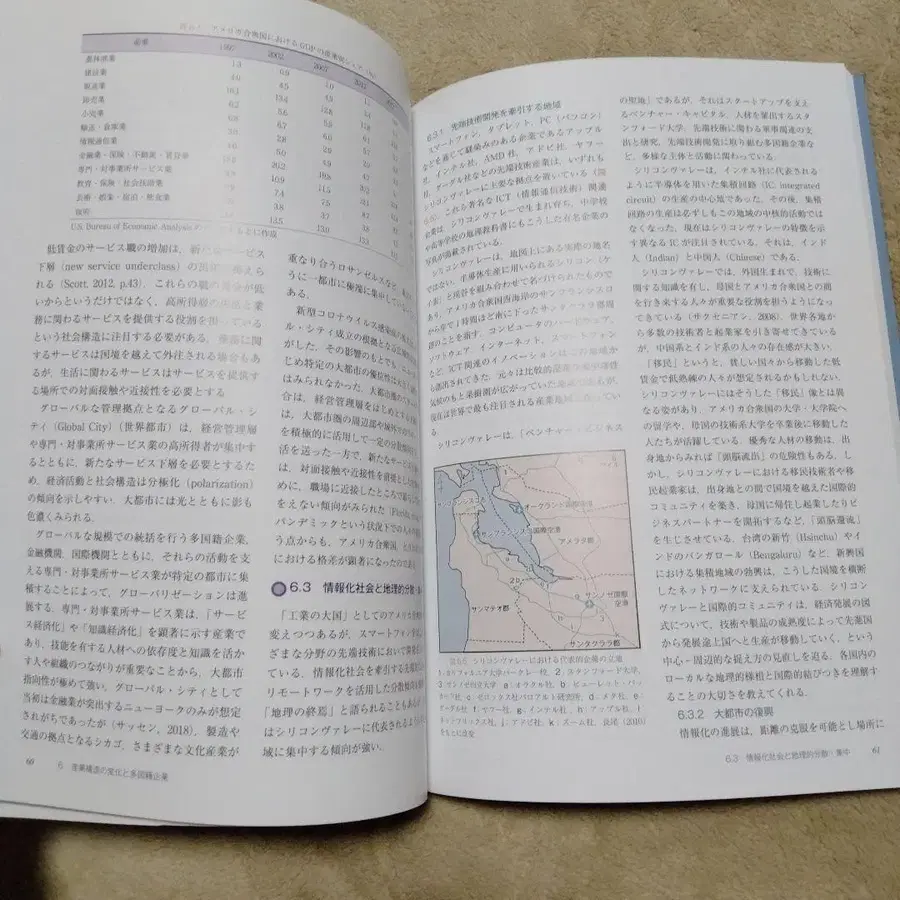 アメリカ合衆国におけるGDPの産業別シェア(%)
産業 1997 2002 2007
農林漁業
建設業
製造業
卸売業
小売業
運送・倉庫業
情報通信業
金融業・保険・不動産・賃貸業
専門・対事業所サービス業
教育・保険・社会扶助業
芸術・娯楽・宿泊・飲食業
政府
U.S. Bureau of Economic Analysis
低賃金のサービス職の増加は，新たなサービス
下層（new service underclass）の
れる（Scott, 2012, p.43）．これらの職の賃金が低
いからというだけではなく，高所得層の生活と業
務に関わるサービスを提供する役割を担っている
という社会構造に注目する必要がある．
するサービスは国境を越えて外注される場合もあ
るが，生活に関わるサービスはサービスを提供す
る場所での対面接触や近接性を必要とする．
グローバルな管理拠点となるグローバル・シ
ティ（Global City）（世界都市）は，経営管理層
や専門・対事業所サービス業の高所得者が集中す
るとともに，新たなサービス下層を必要とするた
め，経済活動と社会構造は分極化（polarization）
の傾向を示しやすい．大都市には光とともに影も
色濃くみられる．
グローバルな規模での統括を行う多国籍企業，
金融機関，国際機関とともに，それらの活動を支
える専門・対事業所サービス業が特定の都市に集
積することによって，グローバリゼーションは進
展する．専門・対事業所サービス業は，「サービ
ス経済化」や「知識経済化」を顕著に示す産業で
あり，技能を有する人材への依存度と知識を活か
す人や組織のつながりが重要なことから，大都市
指向性が極めて強い．グローバル・シティとして
当初は金融業が突出するニューヨークのみが想定
されがちであったが（サッセン，2018），製造や
交通の拠点となるシカゴ，さまざまな文化産業が
重なり合うロサンゼルスなど，
うに一部市に極端に集中して
ある．
新型コロナウイルス感染症の
ル・シティ成立の根拠となる
がした．その影響のもとでも，
じめ特定の大都市の優位性は
はみられなかった．大都市圏の
合は，経営管理層をはじめとする
は，大都市圏の周辺部や
を積極的に活用して一定の分散
活を送った一方で，新たなサービス下
は，対面接触や近接性を前提とした
めに，職場に近接したところで暮らさ
をえない傾向がみられた（Florida
パンデミックという状況下での人の移
う点からも，アメリカ合衆国
における格差が顕著になったのである
6.3 情報化社会と地理的分散・集
「工業の大国」としてのアメリカ合衆
変えつつあるが，スマートフォンなど
ざまな分野の先端技術において開発
ている．情報化社会を牽引する先端
リモートワークを活用した分散傾向
「地理の終焉」と語られることもあるが
はシリコンヴァレーに代表されるよう
域に集中する傾向が強い．
60 6 産業構造の変化と多国籍企業
6.3.1 先端技術開発を牽引する地域
スマートフォン，タブレット，PC（パソコン）
などを通じて馴染みのある企業であるアップル
社，インテル社，AMD社，アドビ社，ヤフー
社，グーグル社などの先端技術産業は，いずれも
シリコンヴァレーに主要な拠点を置いている（図
6.5）．これら著名なICT（情報通信技術）関連
企業は，シリコンヴァレーで生まれ育ち，中学校
や高等学校の地理教科書にもこうした有名企業の
写真が掲載されている．
シリコンヴァレーは，地図上にある実際の地名
ではない．半導体生産に用いられるシリコン（ケ
イ素）と渓谷を組み合わせて名づけられたもので
あり，アメリカ合衆国西海岸のサンフランシスコ
から車で1時間ほど南に下ったサンタクララ郡周
辺のことを指す．コンピュータのハードウェア，
ソフトウェア，インターネット，スマートフォン
など，ICT関連のイノベーションはこの地域か
ら創出されてきた．元々は比較的温暖で
気候のもと果樹園が広がっていた
現在は世界で最も注目される産業地域になってい
る．
シリコンヴァレーは，「ベンチャー・ビジネス
サンフランシスコ
オークランド国際空港
サンフランシスコ国際空港
アラメダ郡
サンノゼ国際
空港
サンマテオ郡
サンタクララ郡
図6.5 シリコンヴァレーにおける代表的企業の立地
1:カリフォルニア大学バークレー校，2:スタンフォード大学，
3:サンノゼ州立大学 a:オラクル社，b:ヒューレット・パッ
カード社，c:ゼロックス社パロアルト研究所，d:メタ社，e:
グーグル社，f:ヤフー社，g:インテル社，h:アップル社，i:
ネットフリックス社，j:アドビ社，k:ズーム社．長尾（2010）
をもとに改変
の聖地」であるが，それはスタートアップを支え
るベンチャー・キャピタル，人材を輩出するスタ
ンフォード大学，先端技術に関わる軍事関連の支
出と研究，先端技術開発に取り組む多国籍企業な
ど，多様な主体と活動に関わっている．
シリコンヴァレーは，インテル社に代表される
ように半導体を用いた集積回路（IC, integrated
circuit）の生産の中心地であった．その後，集積
回路の生産は必ずしもこの地域の中核的活動では
なくなった．現在はシリコンヴァレーの特徴を示
す異なるICが注目されている．それは，インド
人（Indian）と中国人（Chinese）である．
シリコンヴァレーでは，外国生まれで，技術に
関する知識を有し，母国とアメリカ合衆国との間
を行き来する人々が重要な役割を担うようになっ
てきている（サクセニアン，2008）．世界各地か
ら多数の技術者と起業家を引き寄せてきている
が，中国系とインド系の人々の存在感が大きい．
「移民」というと，貧しい国々から移動した低
賃金で低熟練の人々が想定されるかもしれない．
シリコンヴァレーにはそうした「移民」像とは異
なる姿があり，アメリカ合衆国の大学・大学院へ
の留学や，母国の技術系大学を卒業後に移動した
人たちが活躍している．優秀な人材の移動は，出
身地からみれば「頭脳流出」の危険性もある．し
かし，シリコンヴァレーにおける移民技術者や移
民起業家は，出身地との間で国境を越えた国際的
コミュニティを築き，母国に帰任し起業したりビ
ジネスパートナーを開拓するなど，「頭脳還流」
を生じさせている．台湾の新竹（Hsinchu）やイ
ンドのバンガロール（Bengaluru）など，新興国
における集積地域の勃興は，こうした国境を横断
したネットワークに支えられている．シリコン
ヴァレーと国際的コミュニティは，経済発展の図
式について，技術や製品の成熟度によって先進国
から発展途上国へと生産が移動していく，という
中心・周辺的な捉え方の見直しを迫る．各国内の
ローカルな地理的様相と国際的結びつきを理解す
ることの大切さを教えてくれる．
6.3.2 大都市の復興
情報化の進展は，距離の克服を可能とし場所に
6.3 情報化社会と地理的分散・集中 61